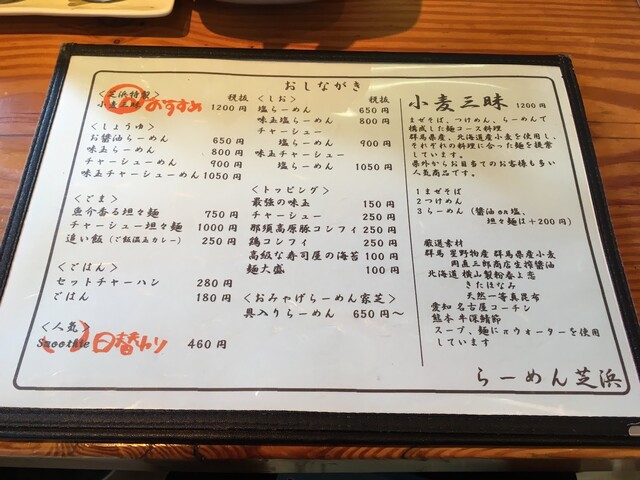 おしながき
＜芝浜特製＞ 税抜
小麦三昧 おすすめ 1200円
＜しょうゆ＞
お醤油らーめん 650円
味玉らーめん 800円
チャーシューめん 900円
味玉チャーシューめん 1050円
＜ごま＞
魚介香る坦々麺 750円
チャーシュー坦々麺 1000円
追い飯（ご飯温玉カレー） 250円
＜ごはん＞
セットチャーハン 280円
ごはん 180円
＜人気＞
Smoothie 日替わり 460円
＜しお＞ 税抜
塩らーめん 650円
味玉塩らーめん 800円
チャーシュー
塩らーめん 900円
味玉チャーシュー
塩らーめん 1050円
＜トッピング＞
最強の味玉 150円
チャーシュー 250円
那須高原豚コンフィ 250円
鶏コンフィ 250円
高級な寿司屋の海苔 100円
麺大盛 100円
＜おみやげらーめん家芝＞
具入りらーめん 650円～
小麦三昧 1200円
まぜそば、つけめん、らーめんで
構成した麺コース料理
群馬県産、北海道産小麦を使用し、
それぞれの料理に合った麺を提案
しています。
県外からお目当てのお客様も多い
人気商品です。
1まぜそば
2つけめん
3らーめん（醤油on塩、
坦々麺は＋200円）
厳選素材
群馬 星野物産 群馬県産小麦
岡直三郎商店生搾醤油
北海道 横山製粉春よ恋
きたほなみ
天然一等真昆布
愛知 名古屋コーチン
熊本 牛深鯖節
スープ、麺にπウォーターを使用
しています
らーめん芝浜